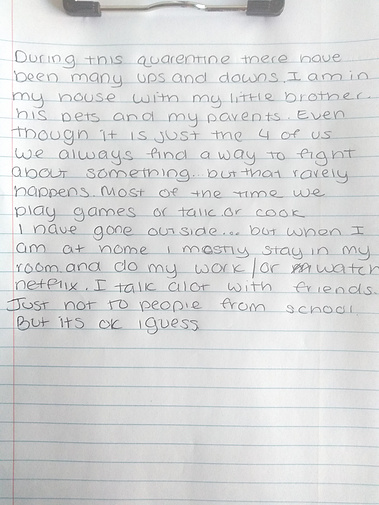 During this quarentine there have
been many ups and downs. I am in
my house with my little brother.
his pets and my parents. Even
though it is just the 4 of us
we always find a way to fight
about something... but that rarely
happens. Most of the time we
play games or talk or cook
I have gone outside... but when I
am at home I mostly stay in my
room and do my work/or watch
netflix. I talk alot with friends.
Just not to people from school.
But its ok iguess